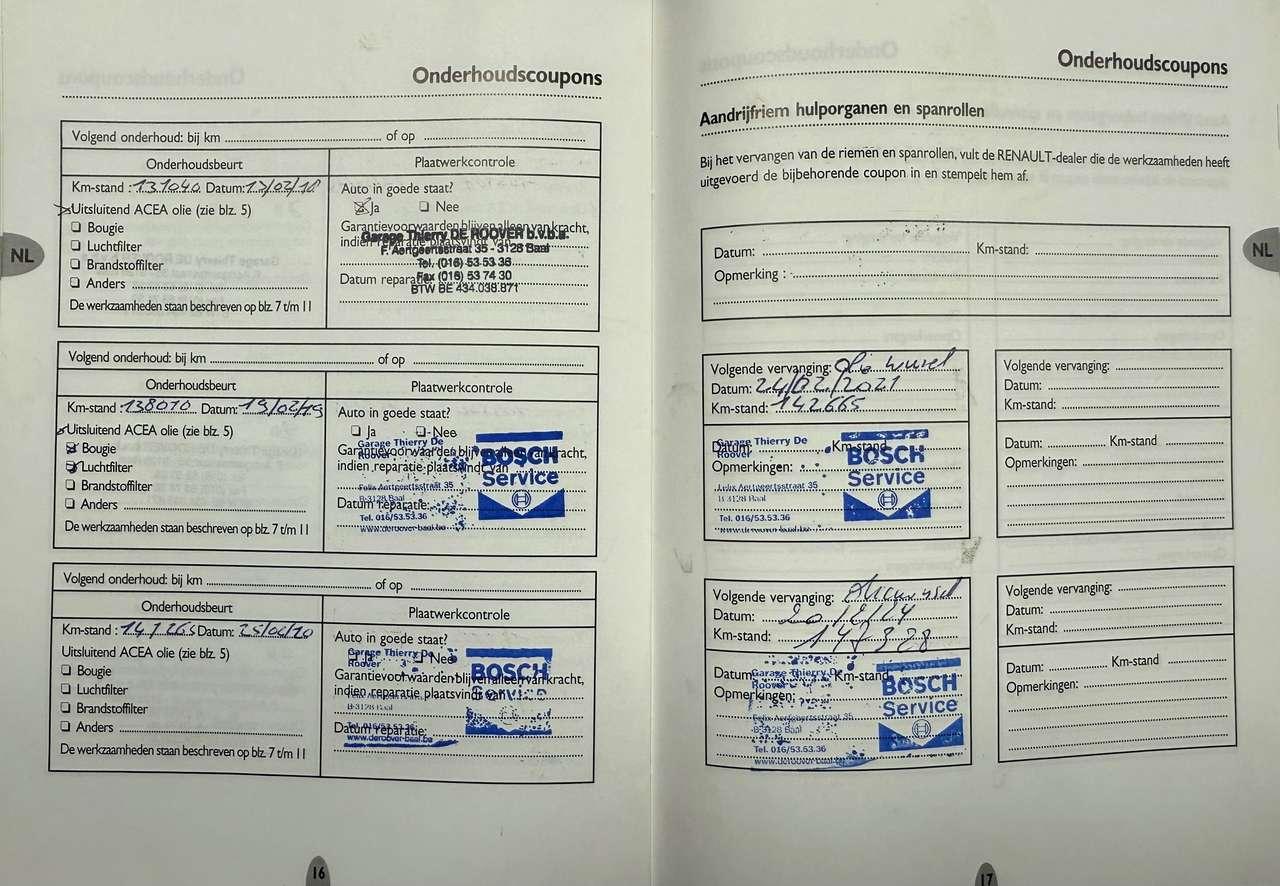 Onderhoudscoupons
Volgend onderhoud: bij km of op
Onderhoudsbeurt
Plaatwerkcontrole
Km-stand : 131040 Datum: 17/02/18
Uitsluitend ACEA olie (zie blz. 5)
Bougie
Luchtfilter
Brandstoffilter
Anders
De werkzaamheden staan beschreven op blz. 7 t/m 11
Auto in goede staat?
Ja Nee
Garantievoorwaarden blijven alleen van kracht,
indien reparatie plaatsvindt van
Datum reparatie:
Garage Thierry DE ROOVER b.v.b.a.
F. Aertgeertsstraat 35 - 3128 Baal
Tel. (016) 53 53 36
Fax (016) 53 74 30
BTW BE 434.038.871
Volgend onderhoud: bij km of op
Onderhoudsbeurt
Plaatwerkcontrole
Km-stand : 138010 Datum: 19/02/19
Uitsluitend ACEA olie (zie blz. 5)
Bougie
Luchtfilter
Brandstoffilter
Anders
De werkzaamheden staan beschreven op blz. 7 t/m 11
Auto in goede staat?
Ja Nee
Garantievoorwaarden blijven alleen van kracht,
indien reparatie plaatsvindt van
Datum reparatie:
Garage Thierry De
Roover
Felix Aertgeertsstraat 35
B-3128 Baal
Tel. 016/53.53.36
www.deroover-baal.be
BOSCH
Service
Volgend onderhoud: bij km of op
Onderhoudsbeurt
Plaatwerkcontrole
Km-stand : 141265 Datum: 25/02/20
Uitsluitend ACEA olie (zie blz. 5)
Bougie
Luchtfilter
Brandstoffilter
Anders
De werkzaamheden staan beschreven op blz. 7 t/m 11
Auto in goede staat?
Ja Nee
Garantievoorwaarden blijven alleen van kracht,
indien reparatie plaatsvindt van
Datum reparatie:
Garage Thierry De
Roover
B-3128 Baal
Tel. 016/53.53.36
www.deroover-baal.be
BOSCH
Service
NL
16
Onderhoudscoupons
Aandrijfriem hulporganen en spanrollen
Bij het vervangen van de riemen en spanrollen, vult de RENAULT-dealer die de werkzaamheden heeft
uitgevoerd de bijbehorende coupon in en stempelt hem af.
Datum: Km-stand:
Opmerking :
Volgende vervanging: Olie wissel
Datum: 24/02/2021
Km-stand: 142665
Datum: Km-stand
Opmerkingen:
Garage Thierry De
Roover
Felix Aertgeertsstraat 35
B-3128 Baal
Tel. 016/53.53.36
www.deroover-baal.be
BOSCH
Service
Volgende vervanging:
Datum:
Km-stand:
Datum: Km-stand
Opmerkingen:
Volgende vervanging: Olie wissel
Datum:
Km-stand:
Datum: Km-stand
Opmerkingen:
Garage Thierry De
Roover
Felix Aertgeertsstraat 35
B-3128 Baal
Tel. 016/53.53.36
www.deroover-baal.be
BOSCH
Service
Volgende vervanging:
Datum:
Km-stand:
Datum: Km-stand
Opmerkingen:
NL
17